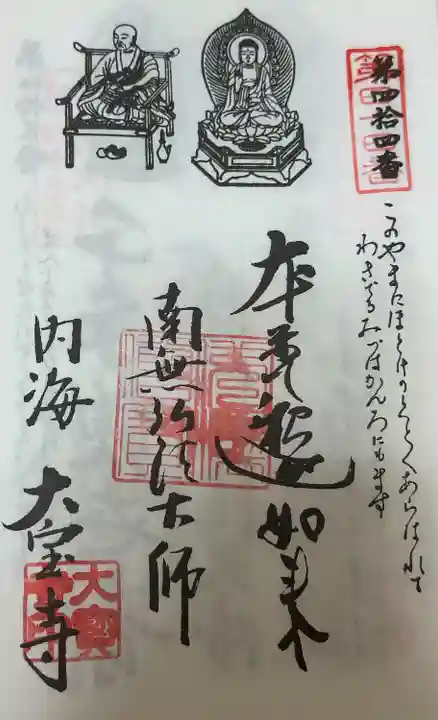 第四拾四番
このやまにほとけ あらはれて
わきづるみづはかんろにもます
本尊釋迦如来
南無弘法大師
内海 大宝寺
大寶